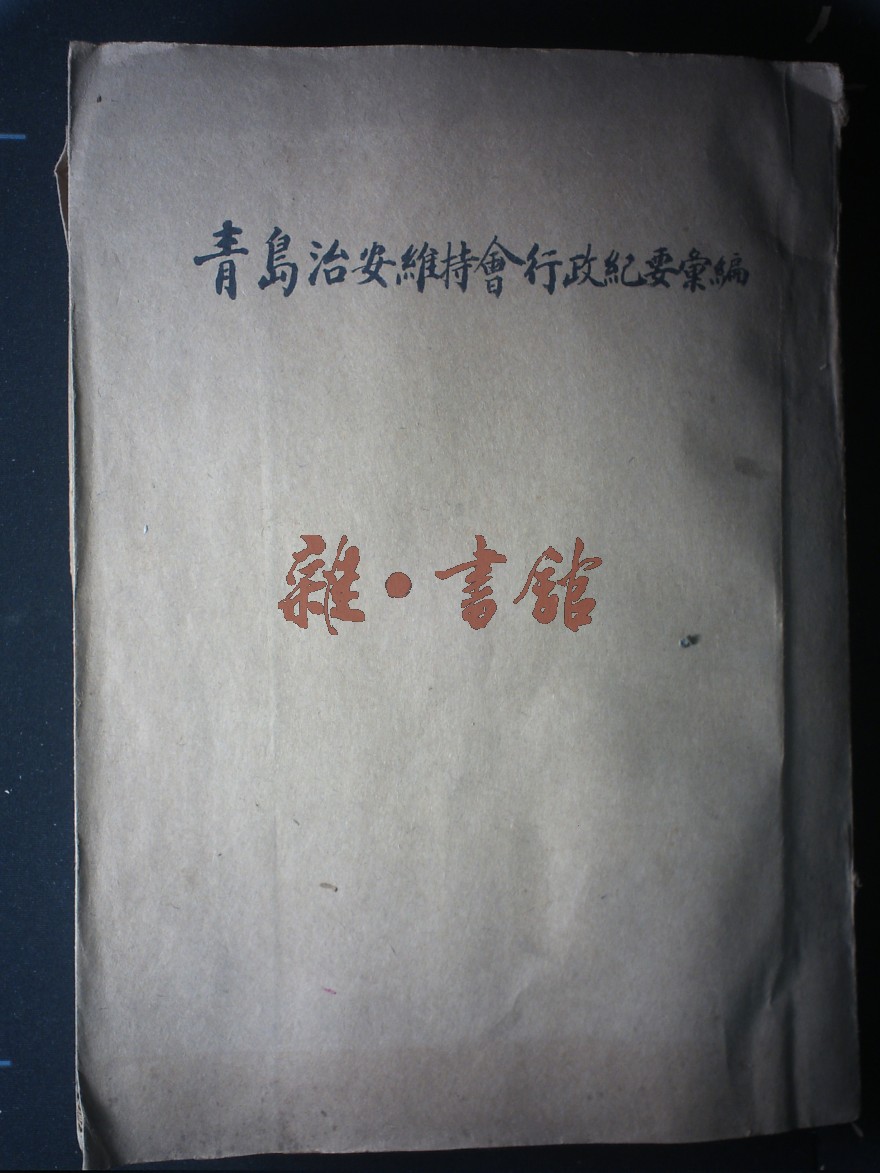 青島治安維持會行政紀要彙編
雜·書館